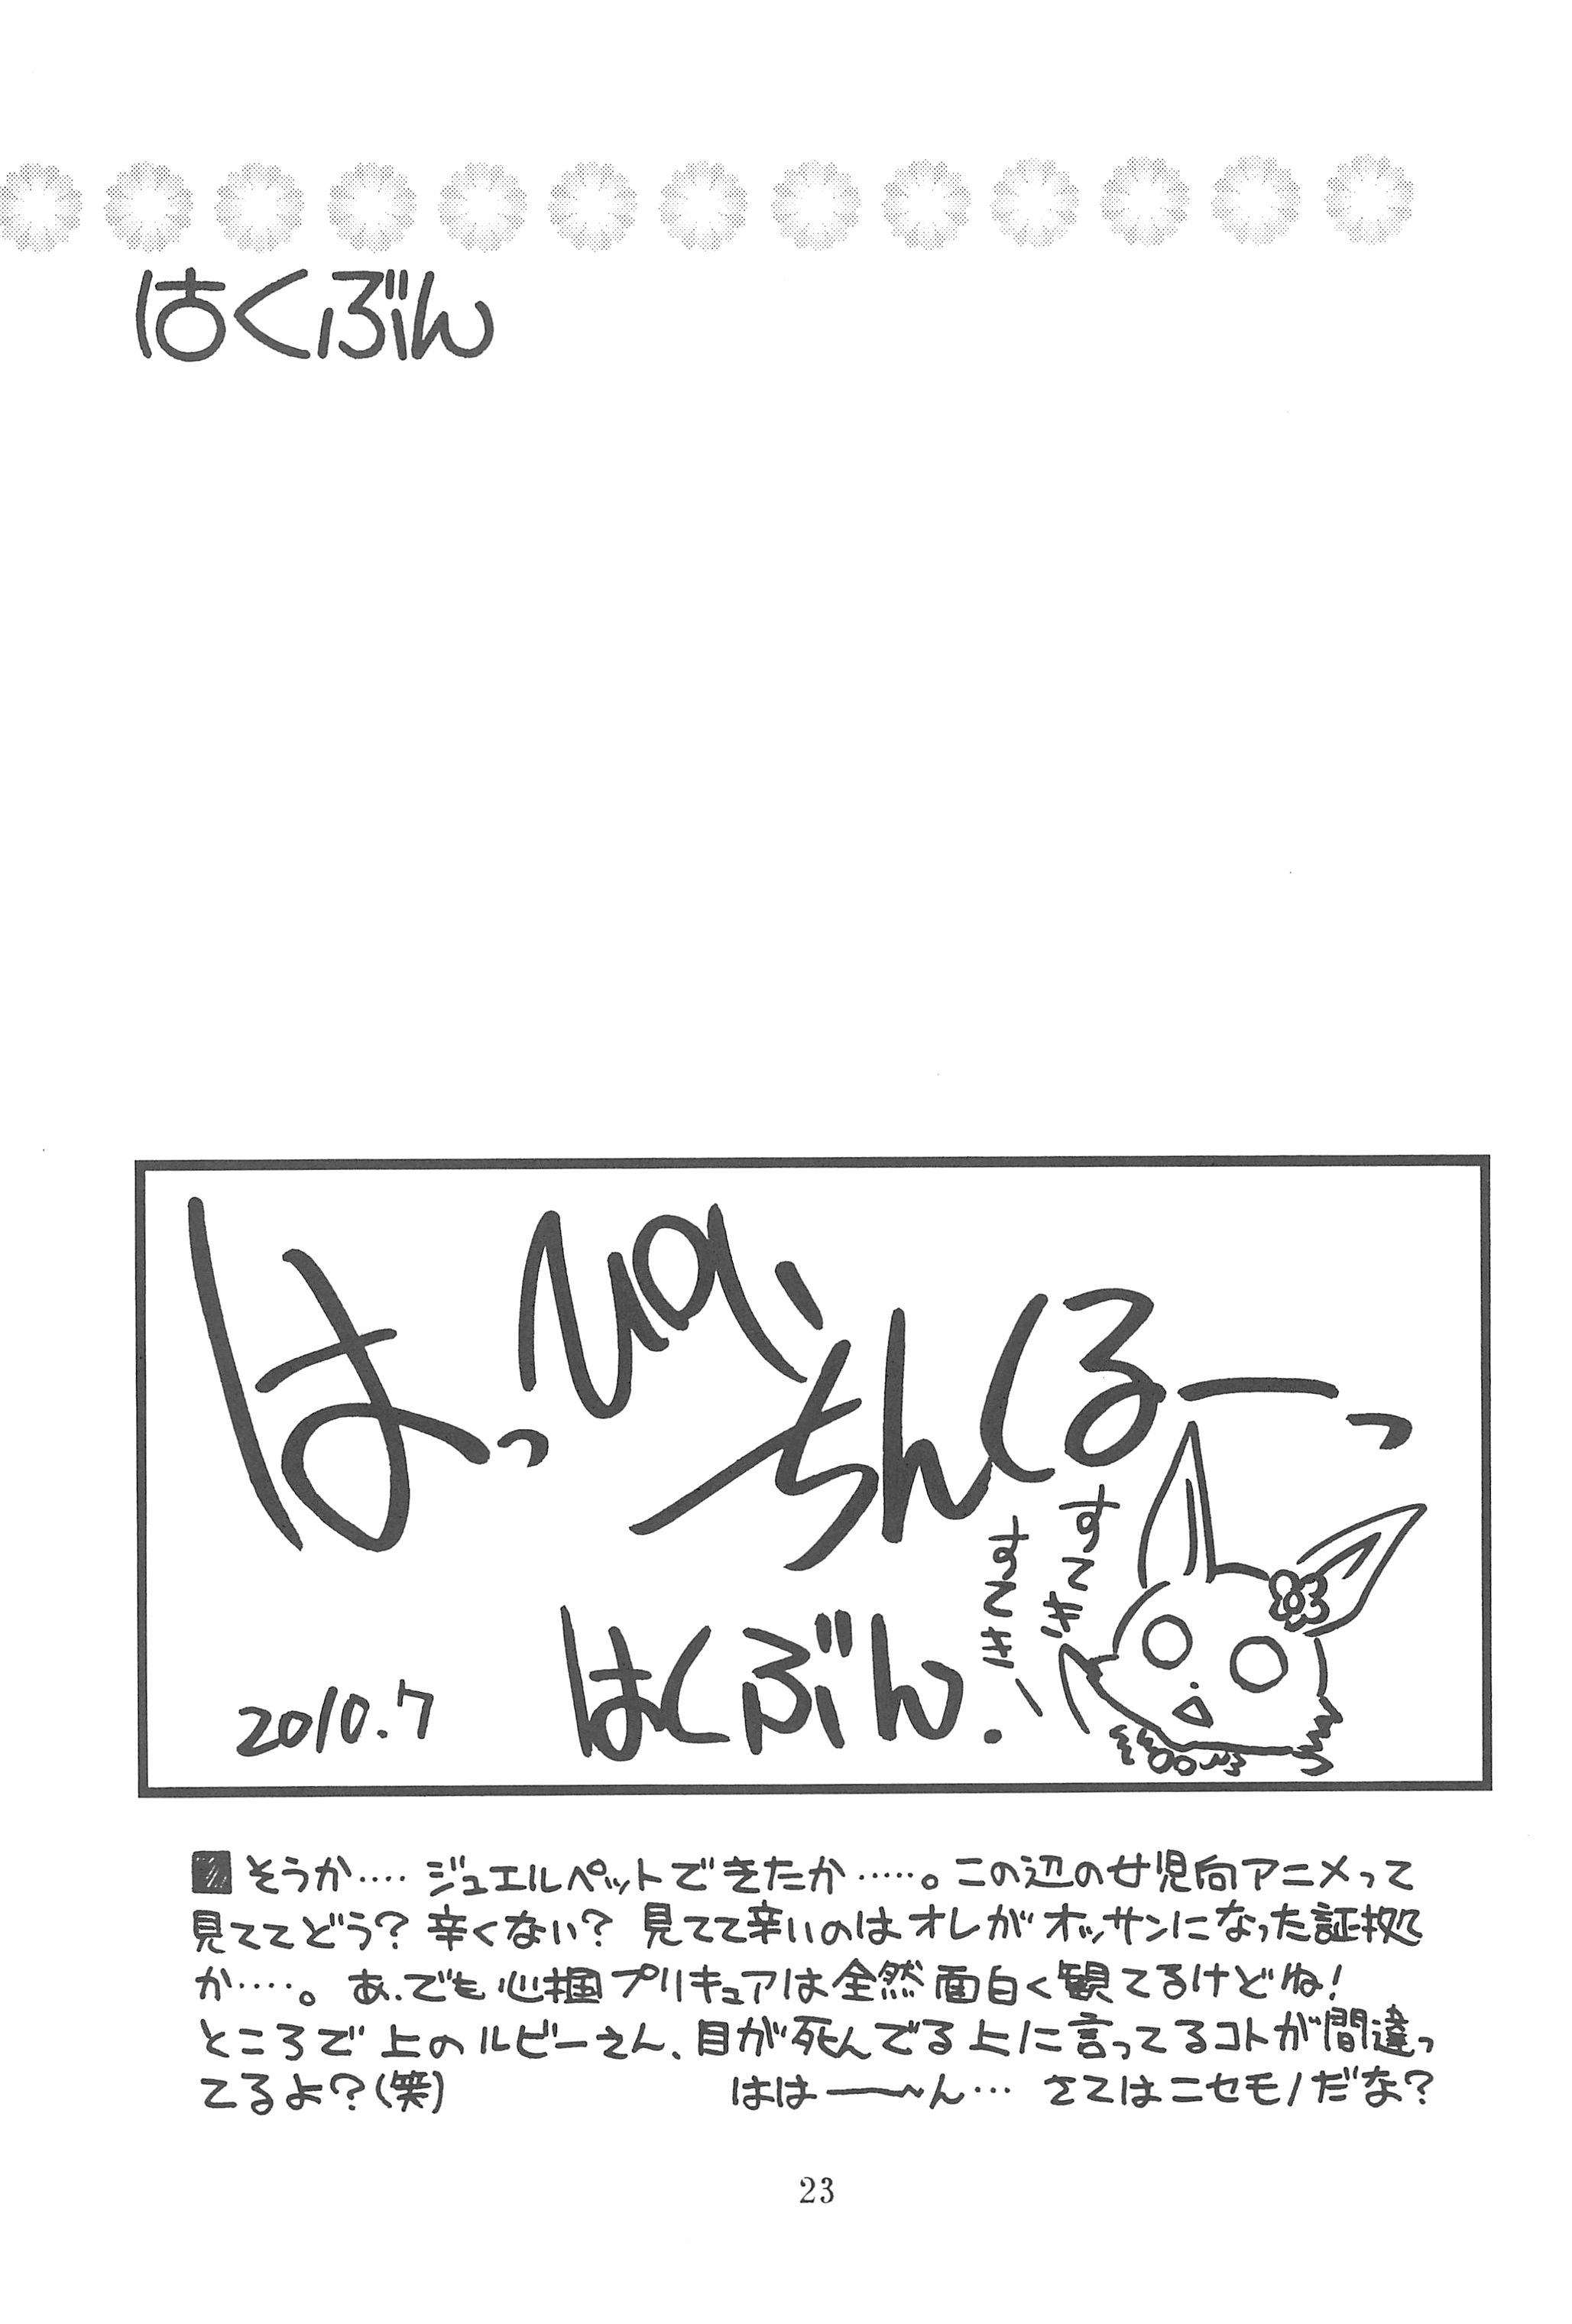 はくぶん
はっぴぃ
ちんくるーっ
すてき
すてき!
はくぶん.
2010.7
■そうか‥‥ジュエルペットできたか‥‥‥。この辺の女児向アニメって
見ててどう?辛くない?見てて辛いのはオレがオッサンになった証拠
か‥‥‥。あ、でも心掴プリキュアは全然面白く観てるけどね!
ところで上のルビーさん、目が死んでる上に言ってるコトが間違っ
てるよ?(笑)　ははー～ん… さてはニセモノだな?
23